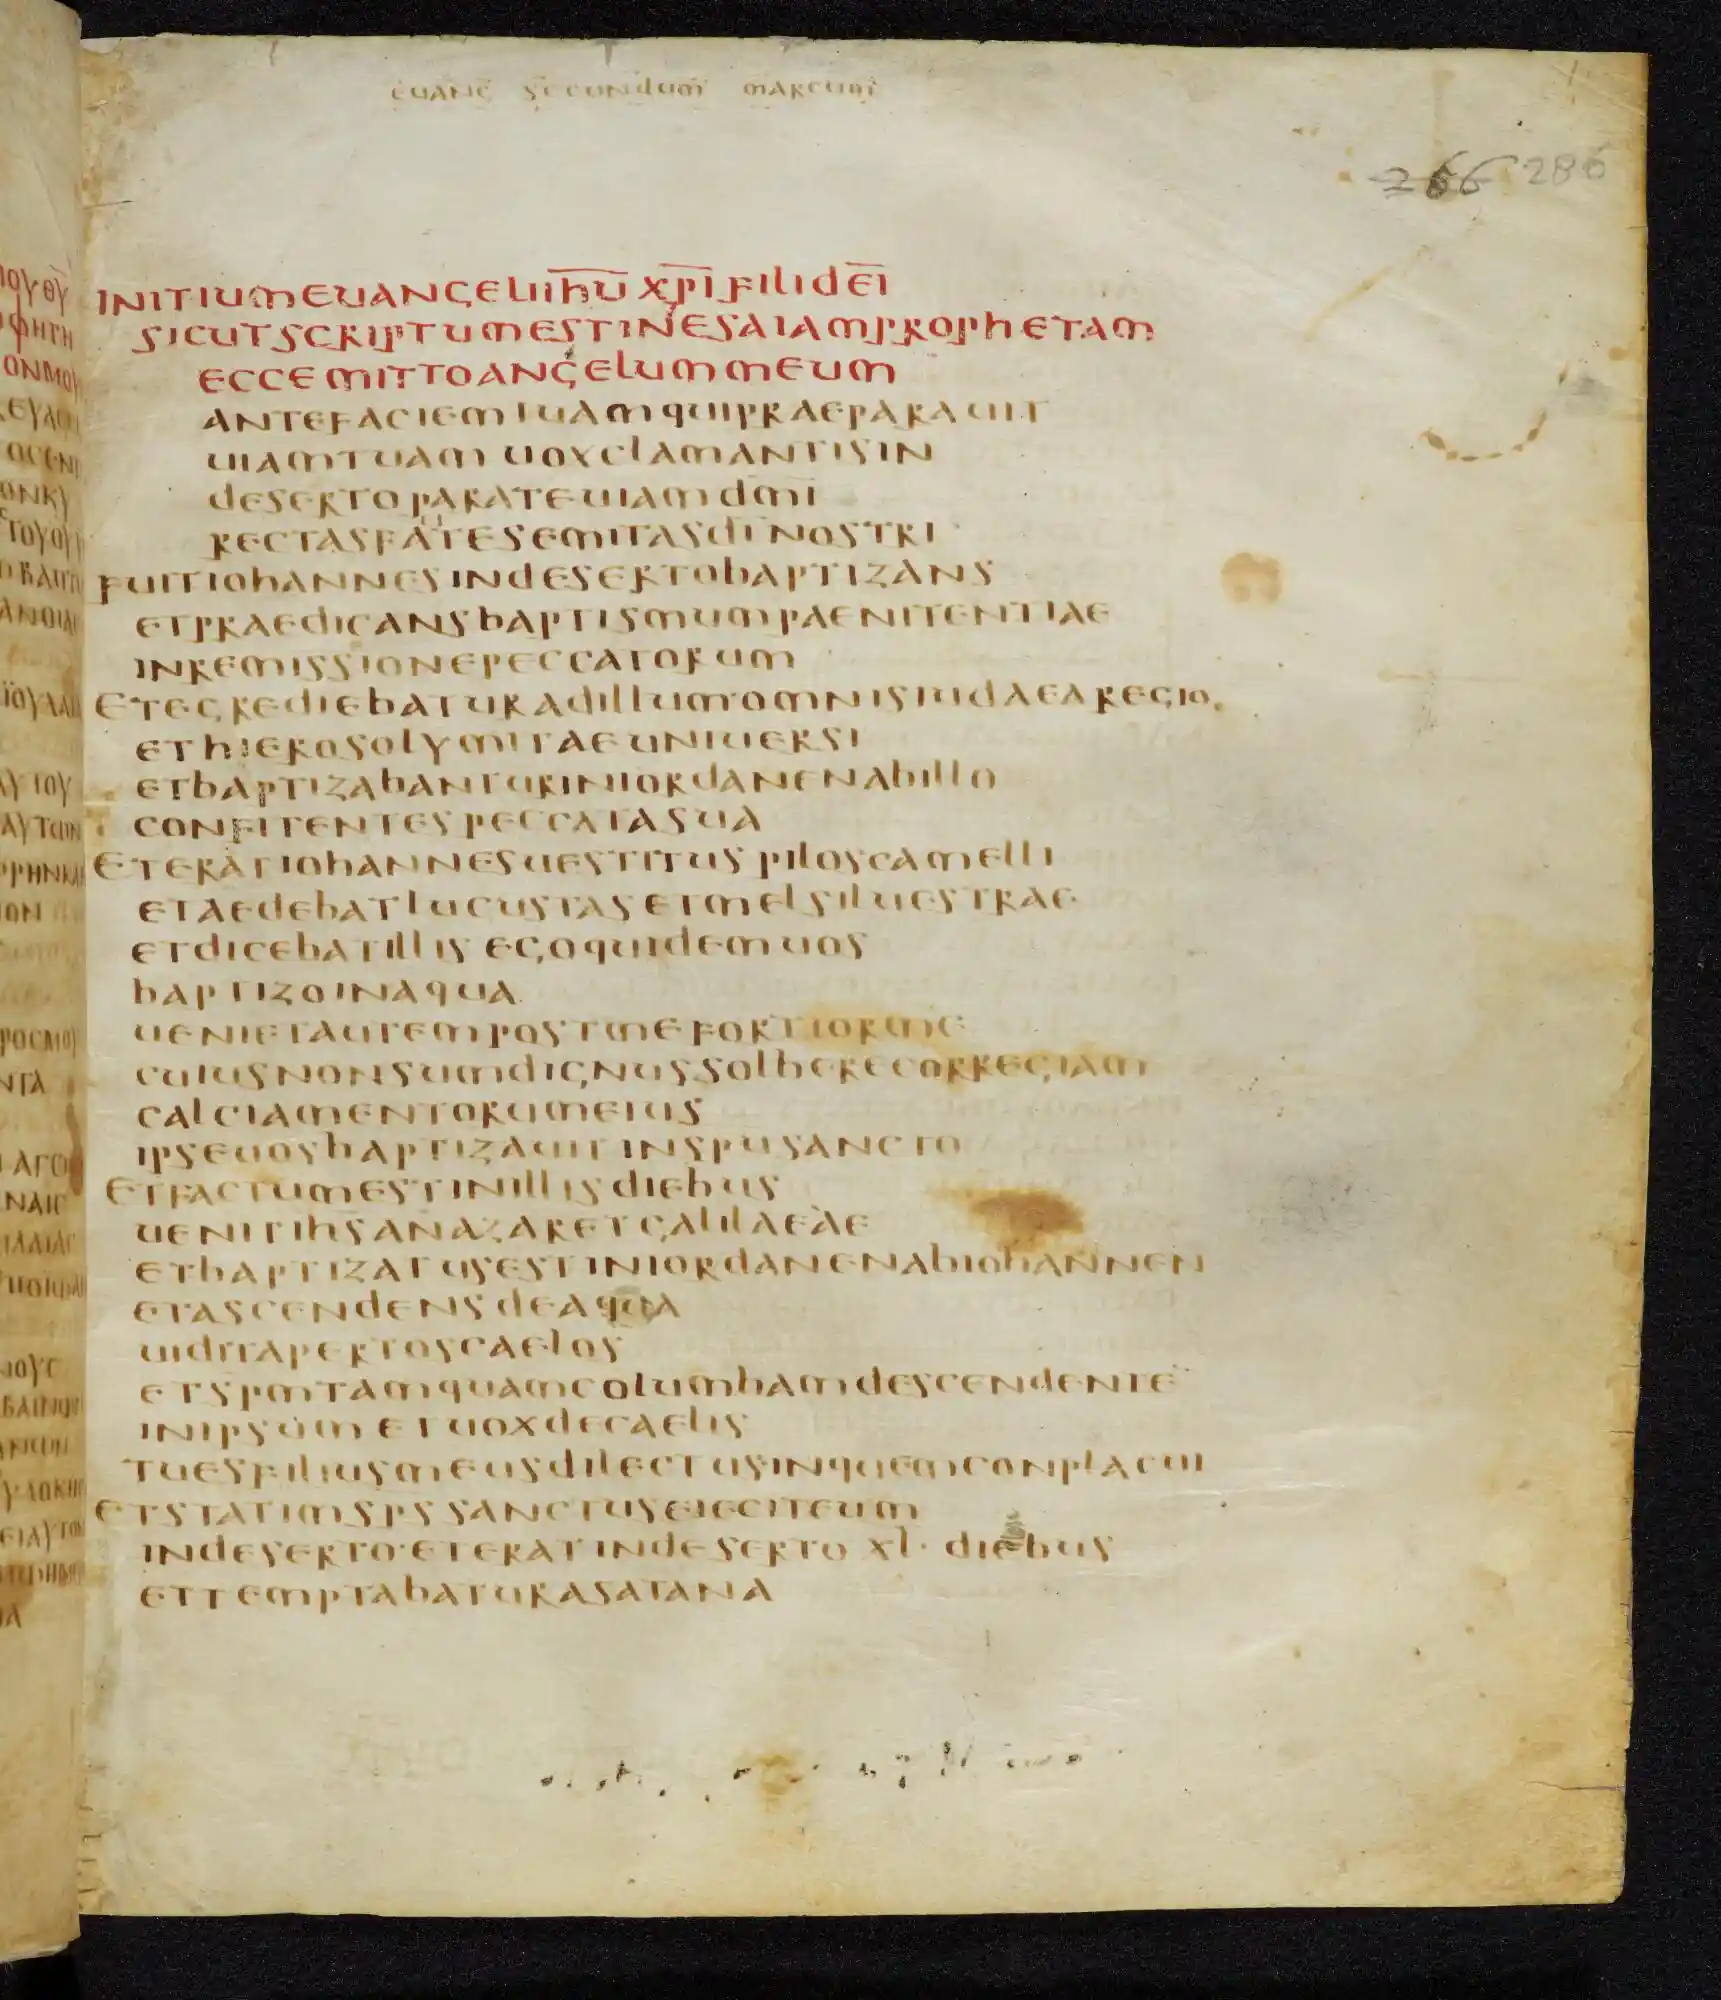 euang secundum marcum
266 286
INITIUM EUANGELII IHU XPI FILI DEI
SICUT SCRIPTUM EST IN ESAIAM PROPHETAM
ECCE MITTO ANGELUM MEUM
ANTE FACIEM TUAM QUI PRAEPARAUIT
UIAM TUAM UOX CLAMANTIS IN
DESERTO PARATE UIAM DMI
RECTAS FATE SEMITAS DI NOSTRI
FUIT IOHANNES IN DESERTO BAPTIZANS
ET PRAEDICANS BAPTISMUM PAENITENTIAE
IN REMISSIONE PECCATORUM
ET EGREDIEBATUR AD ILLUM OMNIS IUDAEA REGIO
ET HIEROSOLYMITAE UNIUERSI
ET BAPTIZABANTUR IN IORDANEN AB ILLO
CONFITENTES PECCATA SUA
ET ERAT IOHANNES UESTITUS PILOS CAMELLI
ET AEDEBAT LUCUSTAS ET MEL SILUESTRAE
ET DICEBAT ILLIS EGO QUIDEM UOS
BAPTIZO IN AQUA
UENIET AUTEM POST ME FORTIOR ME
CUIUS NON SUM DIGNUS SOLBERE CORREGIAM
CALCIAMENTORUM EIUS
IPSE UOS BAPTIZAUIT IN SPU SANCTO
ET FACTUM EST IN ILLIS DIEBUS
UENIT IHS A NAZARET GALILAEAE
ET BAPTIZATUS EST IN IORDANEN AB IOHANNEN
ET ASCENDENS DE AQUA
UIDIT APERTOS CAELOS
ET SPM TAMQUAM COLUMBAM DESCENDENTE
IN IPSUM ET UOX DE CAELIS
TU ES FILIUS MEUS DILECTUS IN QUEM CONPLACUI
ET STATIM SPS SANCTUS EIECIT EUM
IN DESERTO · ET ERAT IN DESERTO XL · DIEBUS
ET TEMPTABATUR A SATANA